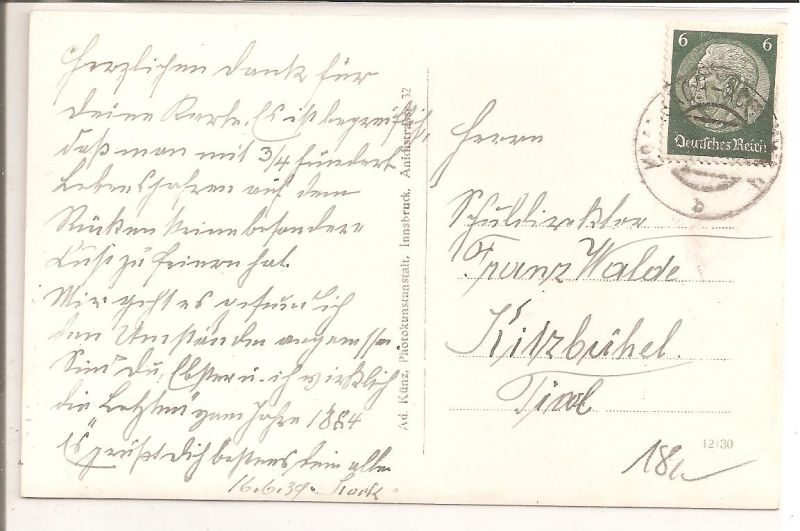 Herzlichen Dank für
deine Karte. Es ist begreiflich,
daß man mit 3/4 hundert
Lebensjahren auf dem
Rücken keine besondere
Lust zu feiern hat.
Mir geht es gesundlich
den Umständen angemessen.
Sind Du, Ebster u. ich wirklich
die "Letzten" vom Jahre 1864
Es grüßt Dich bestens dein alter
16.6.39.
Ad. Künz, Photokunstanstalt, Innsbruck, Anichstrasse 32
6 6
Deutsches Reich
b
Herrn
Schuldirektor
Franz Walde
Kitzbühel.
Tirol
12:30